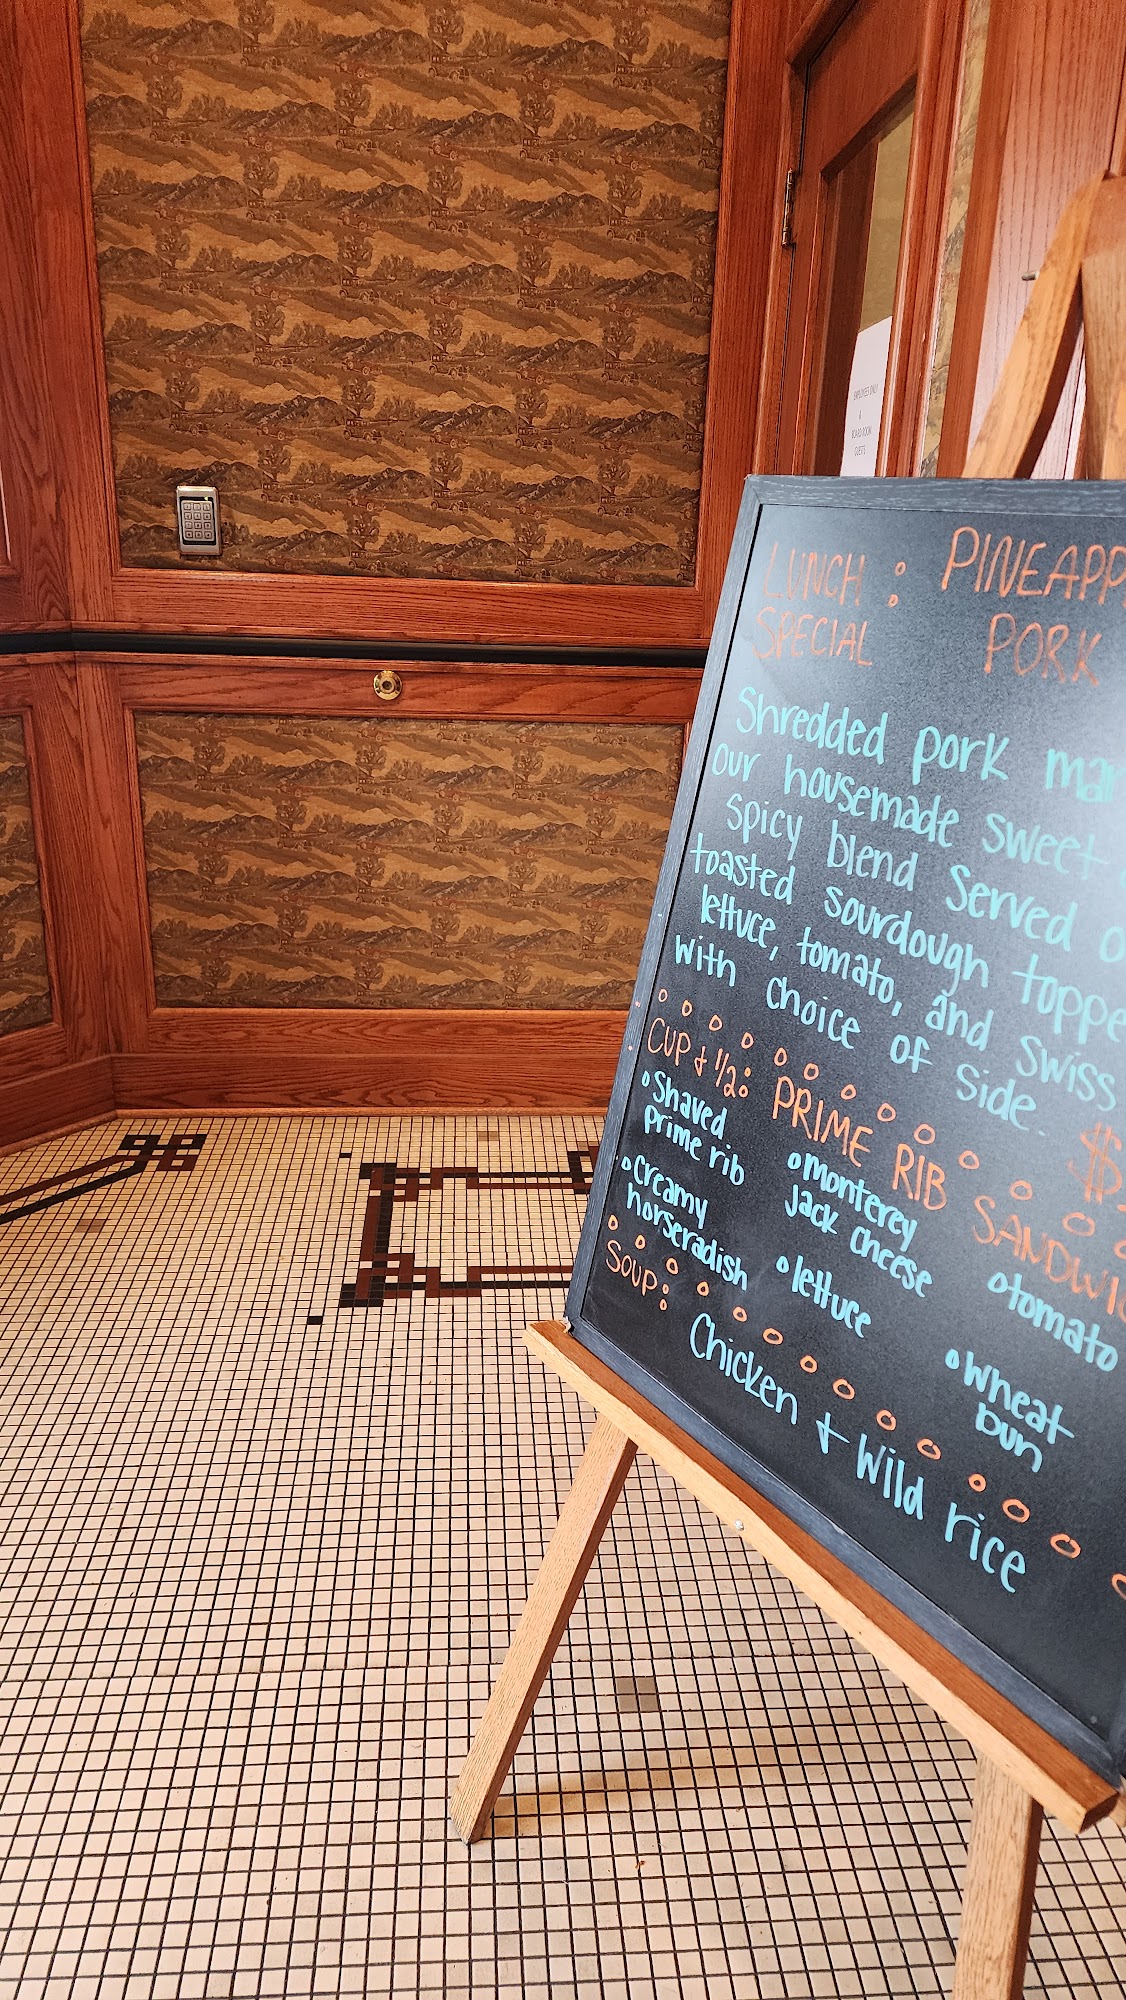 EMPLOYEES ONLY
&
BOARD ROOM
GUESTS
LUNCH : PINEAPP
SPECIAL PORK
Shredded pork mar
our housemade sweet
spicy blend Served o
toasted sourdough toppe
lettuce, tomato, and swiss
with choice of side.
$
CUP + 1/2: PRIME RIB SANDWIC
Shaved
prime rib
creamy
horseradish
monterey
Jack cheese
lettuce
tomato
wheat
bun
SOUP:
Chicken + Wild rice